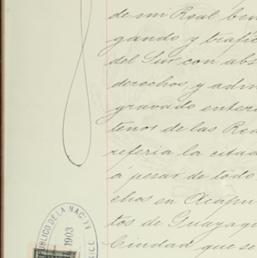 de mi Real ben
gando y trafic
del Sur con abs
derechos y adm
gravado entera
tenos de las Rea
referia la citad
à pesar de todo
chos en Acapu
tos de Guayaqu
Ciudad que se
PUBLICO DE LA NAC
1903